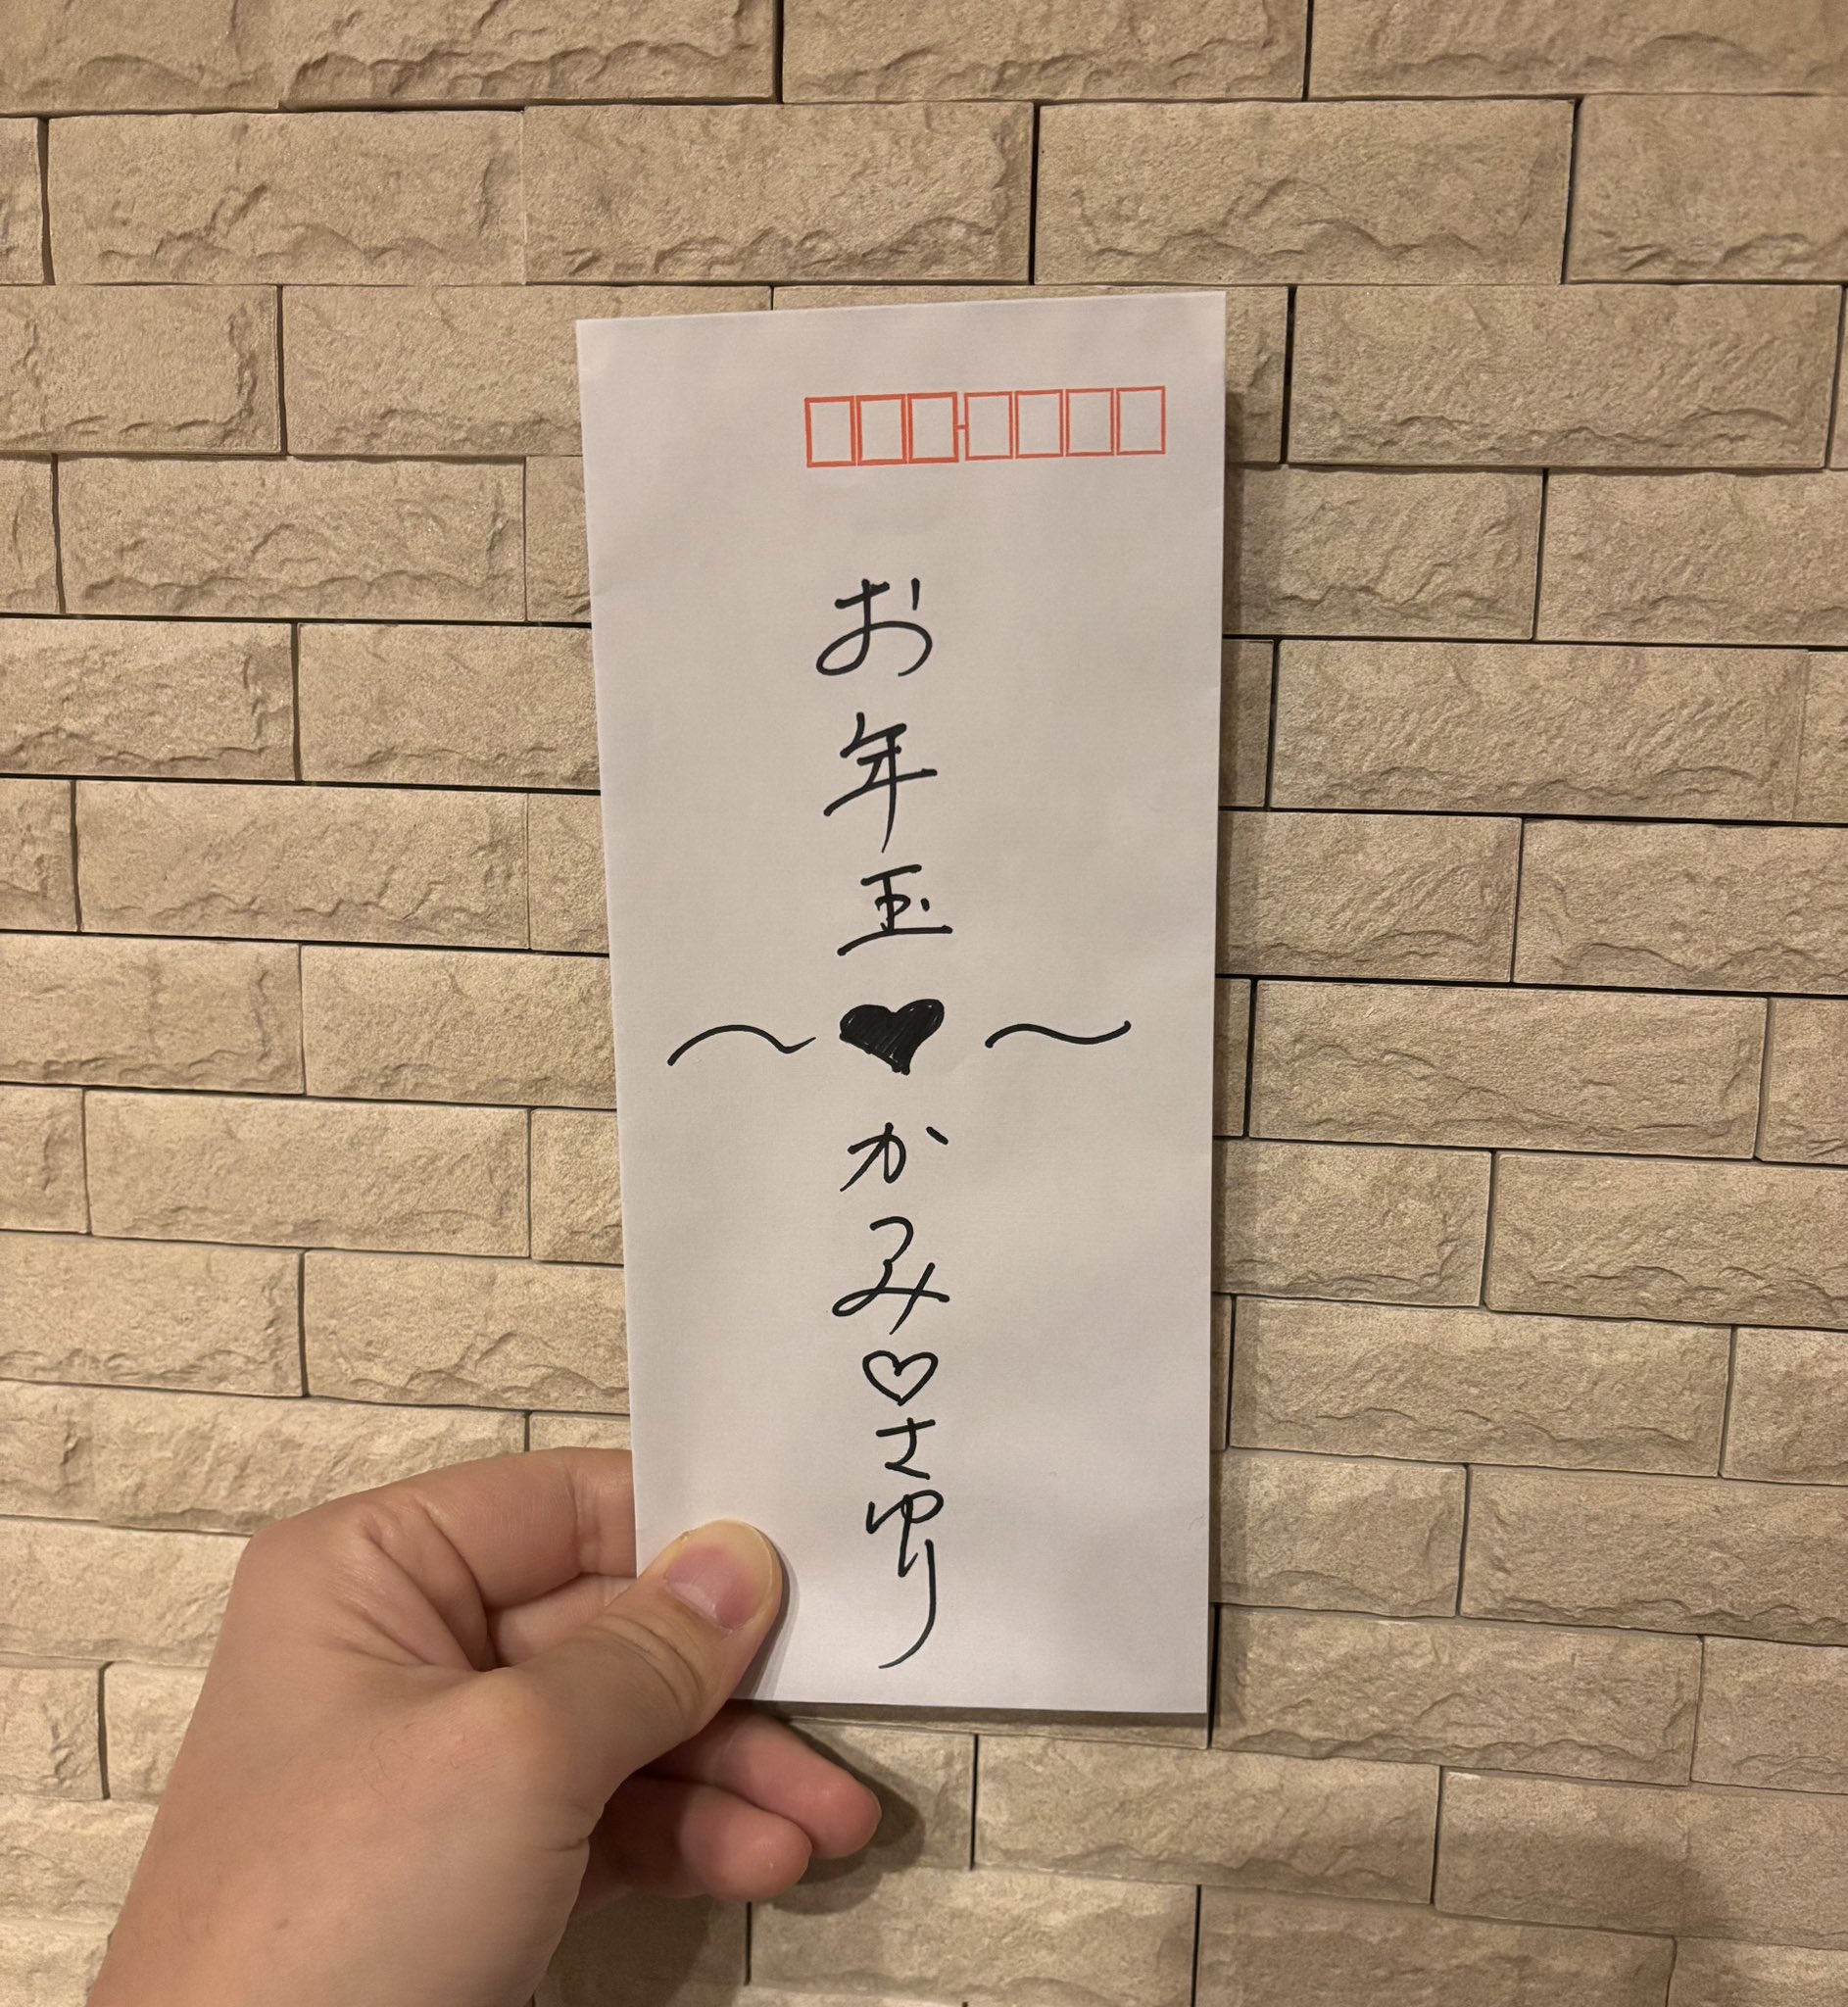 お年玉
〜♥〜
かみ♡さゆり